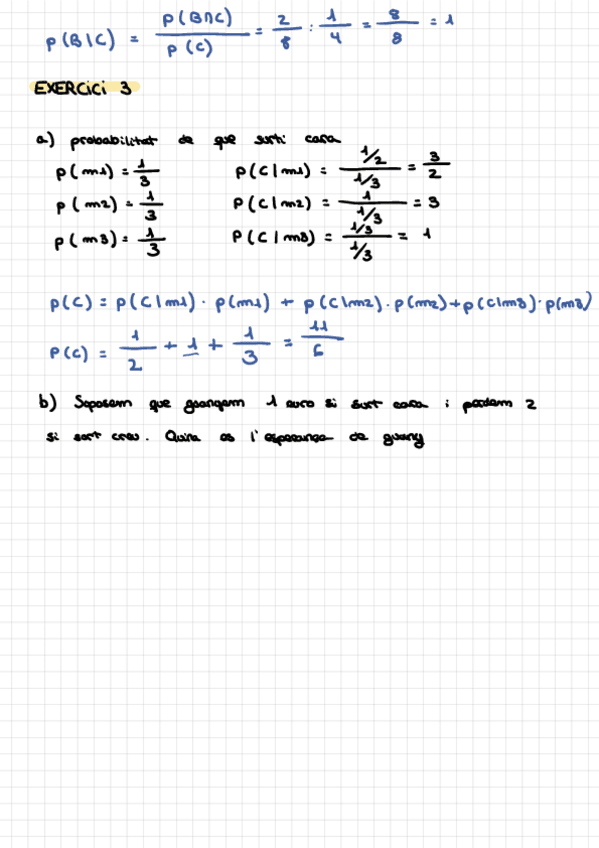 P(B|C) = P(B∩C) / P(C) = 2/8 : 1/4 = 8/8 = 1
EXERCICI 3
a) probabilitat de que surti cara
P(m1) = 1/3 P(C|m1) = 1/2 / 1/3 = 3/2
P(m2) = 1/3 P(C|m2) = 1 / 1/3 = 3
P(m3) = 1/3 P(C|m3) = 1/3 / 1/3 = 1
P(C) = P(C|m1) · P(m1) + P(C|m2) · P(m2) + P(C|m3) · P(m3)
P(C) = 1/2 + 1 + 1/3 = 11/6
b) Soposem que goangem 1 euro si surt cara i perdem 2
si sort creu. Quina es l'esperança de guany